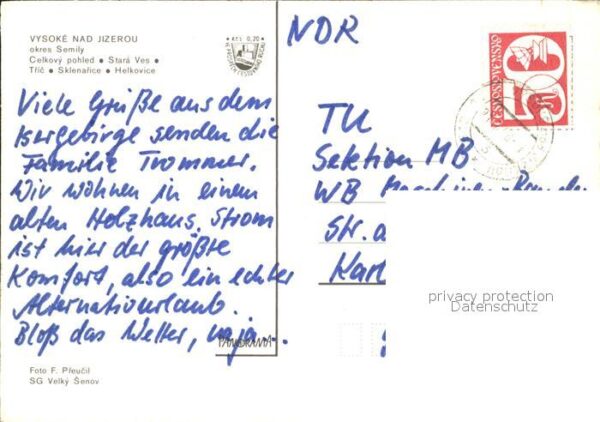 VYSOKÉ NAD JIZEROU
okres Semily
Celkový pohled • Stará Ves •
Tříč • Sklenařice • Helkovice
Kčs 0,20
Viele Grüße aus dem
Isergebirge senden die
Familie Trommer.
Wir wohnen in einem
alten Holzhaus, Strom
ist hier der größte
Komfort, also ein echter
Alternativurlaub.
Bloß das Wetter, naja...
PANORAMA
Foto F. Přeučil
SG Velký Šenov
NDR
ČESKOSLOVENSKO
50
TU
Sektion MB
WB
Str. a
Karl
privacy protection
Datenschutz